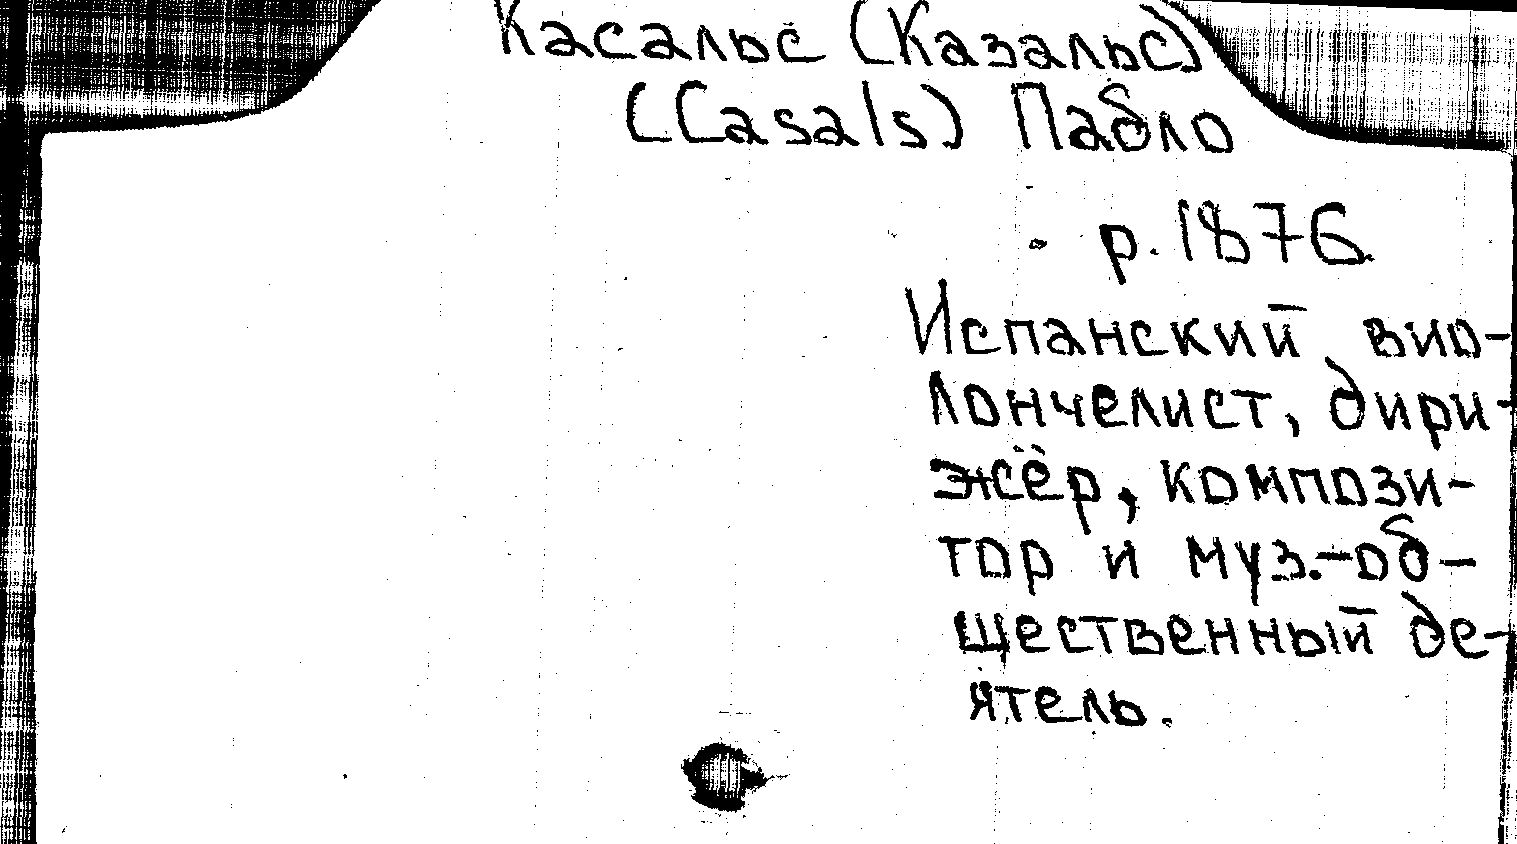 Касальс (Казальс)
(Casals) Пабло
р. 1876.
Испанский вио-
лончелист, дири-
жёр, компози-
тор и муз.-об-
щественный де-
ятель.